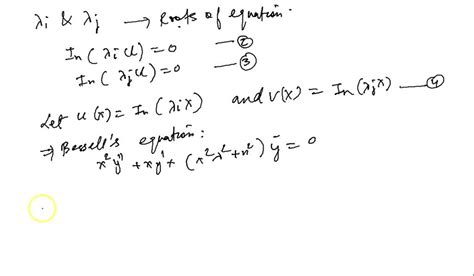 λi & λj → Roots of equation.
In(λi u) = 0 — ②
In(λj u) = 0 — ③
Let u(x) = In(λi x) and v(x) = In(λj x) — ④
⇒ Bessell's equation:
x² y" + x y' + (x² λ² + n²) y = 0